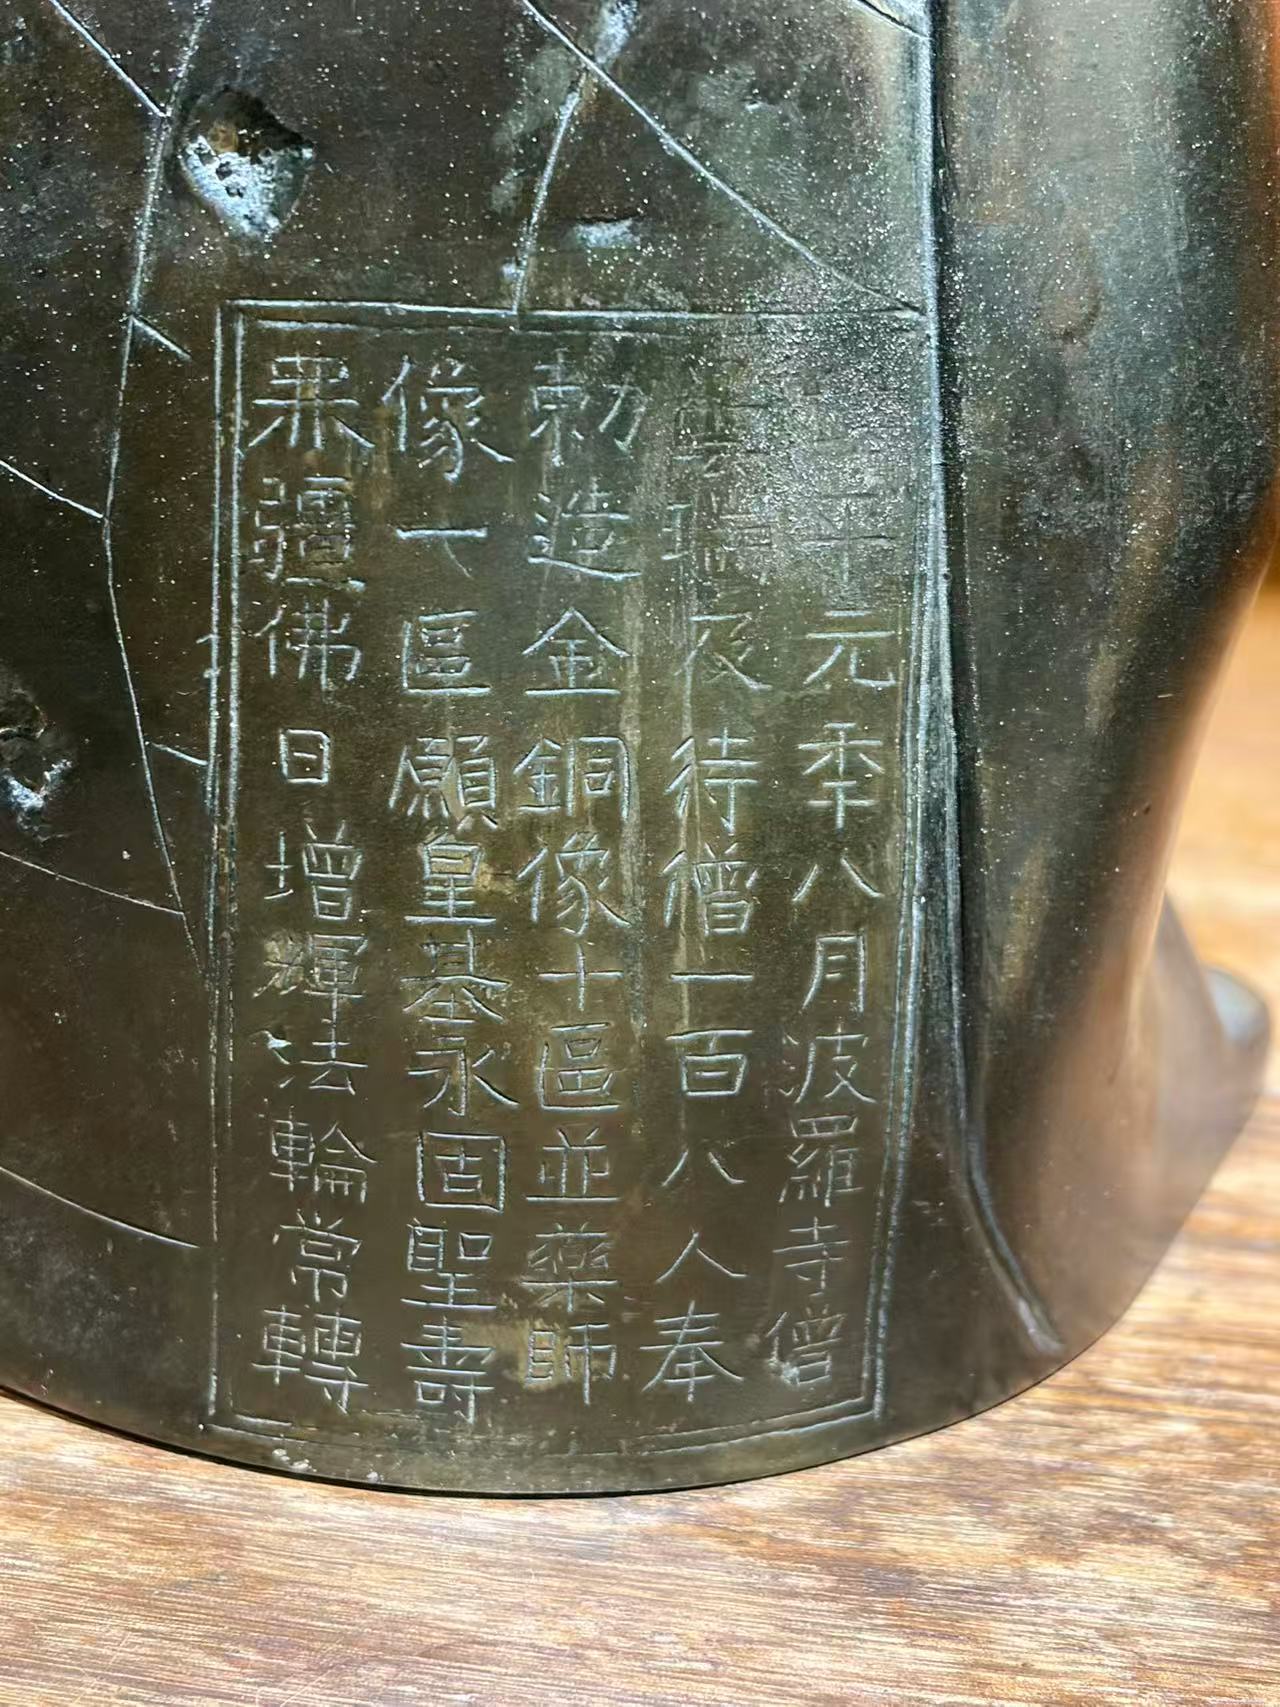 平元秊八月波羅寺僧
雲瑞及待僧一百八人奉
勅造金銅像十區並藥師
像一區願皇基永固聖壽
無疆佛日增輝法輪常轉